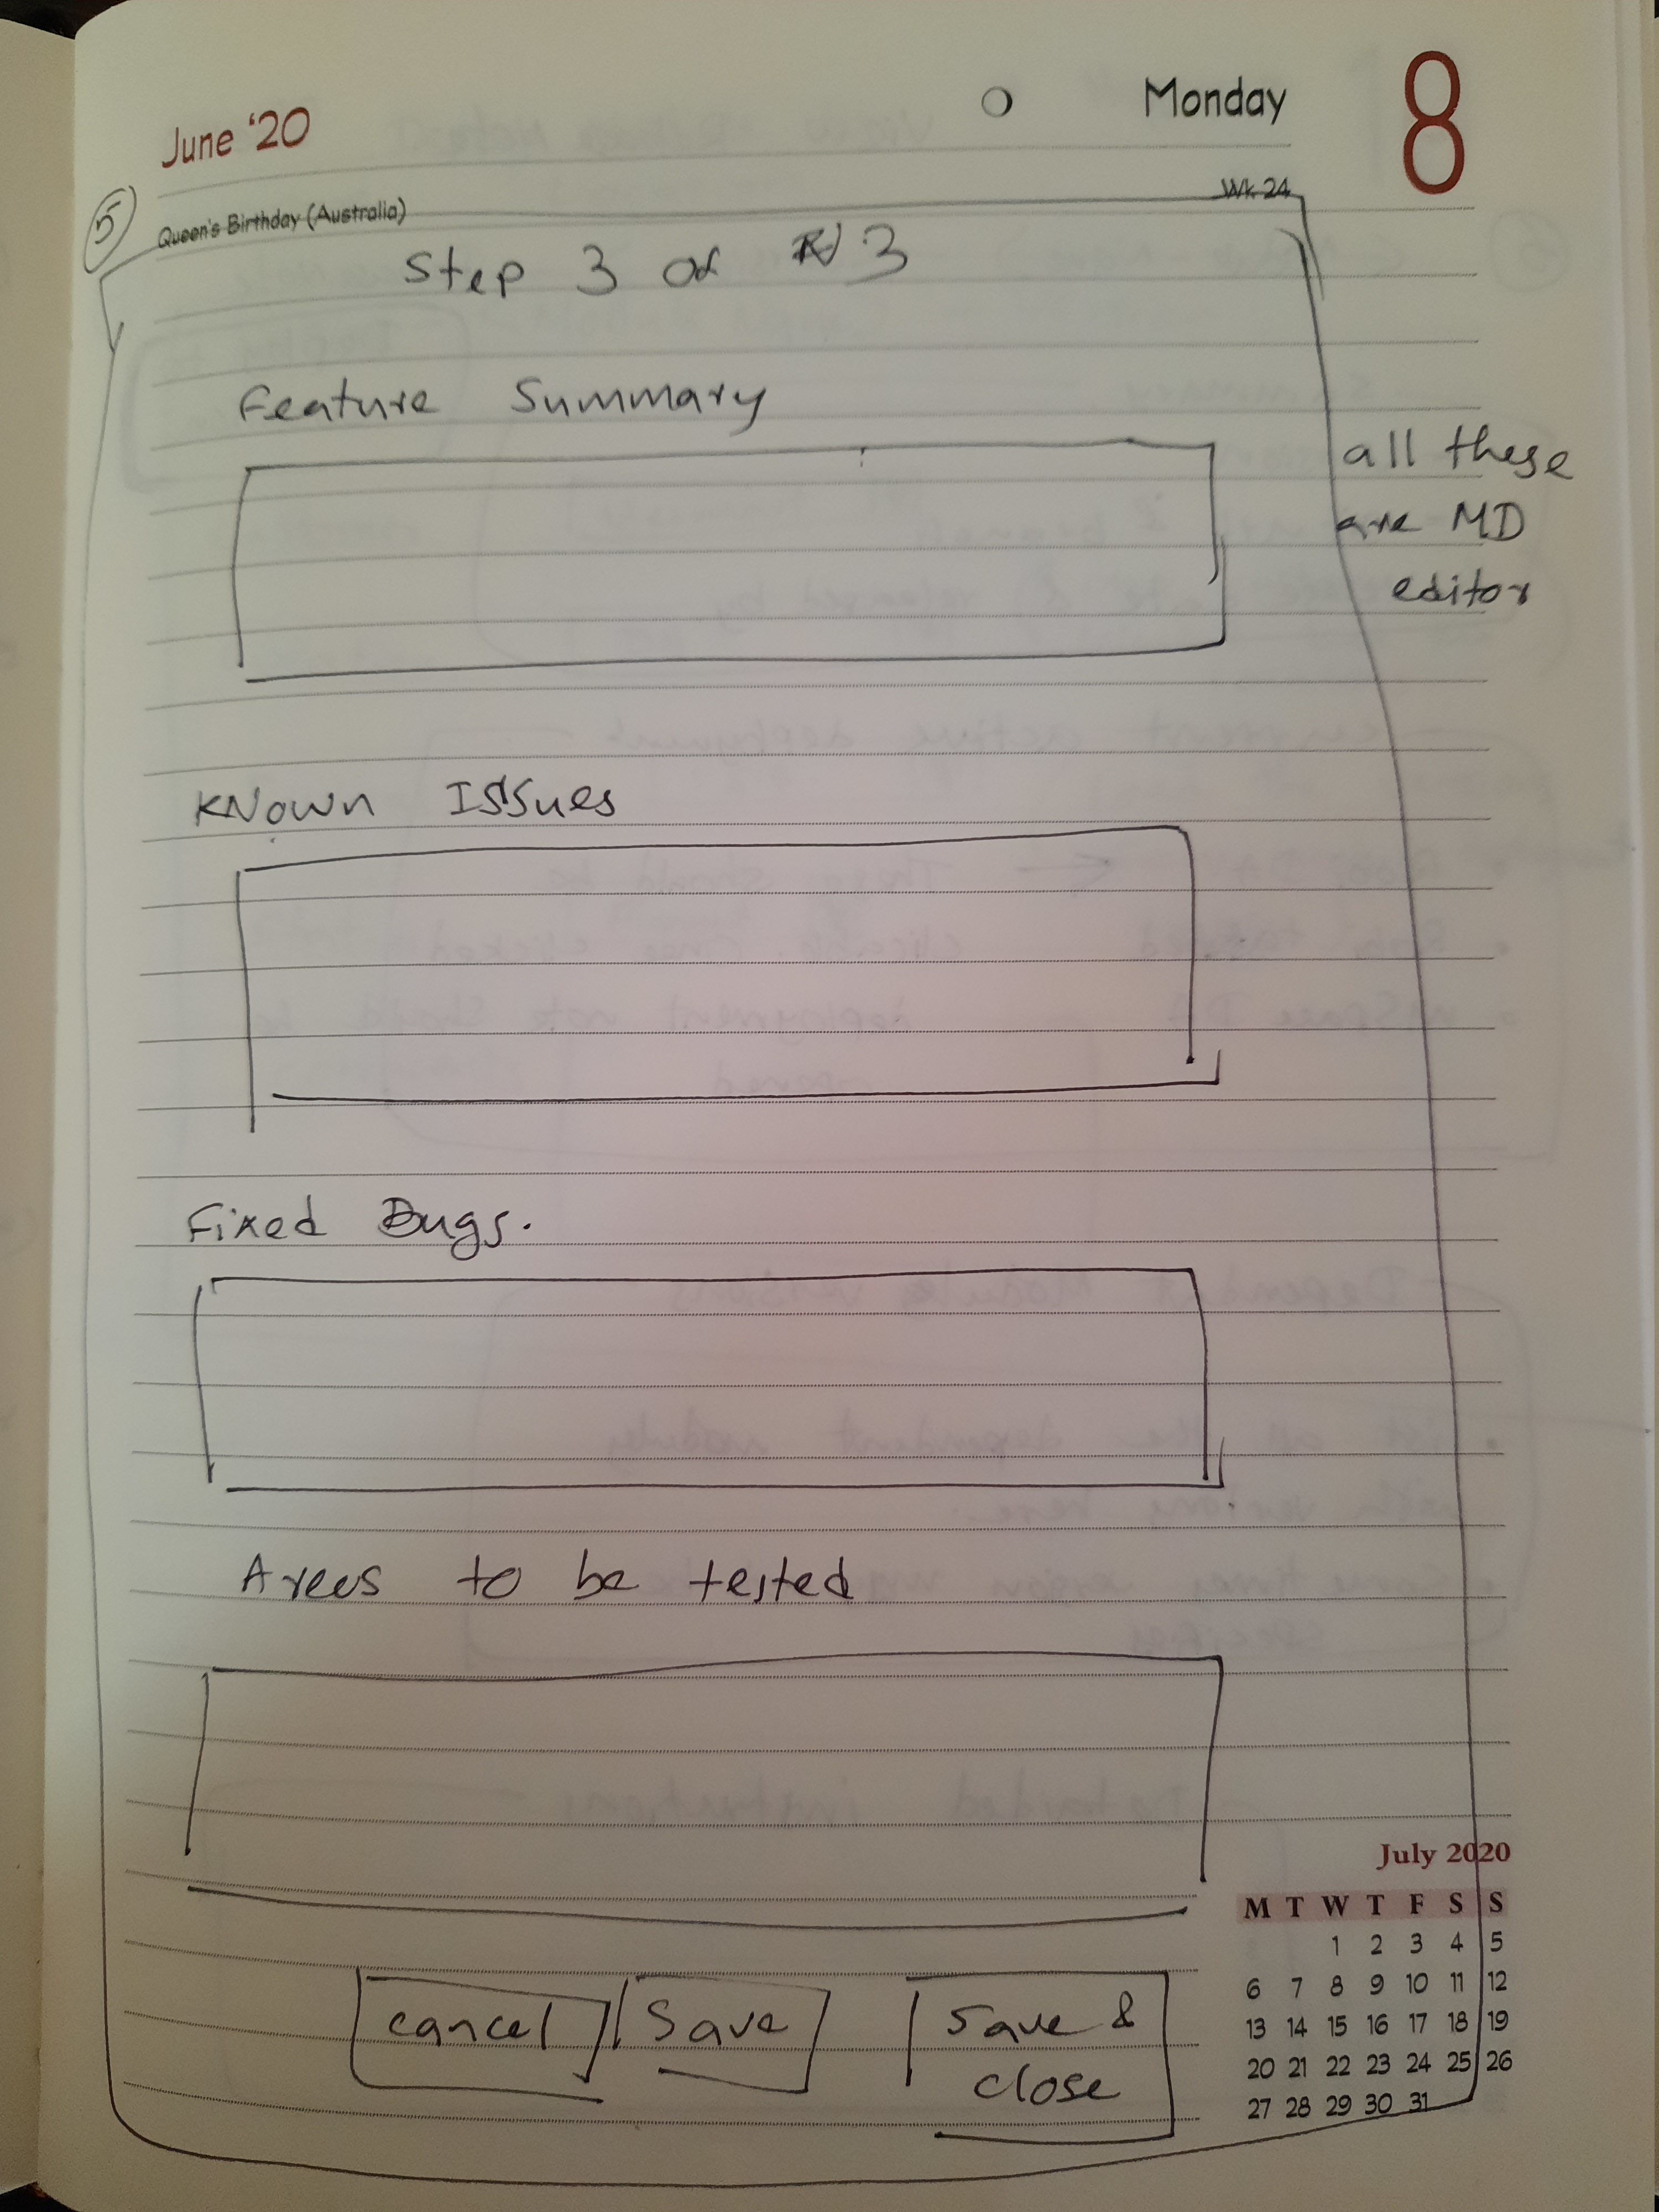 June '20
Monday
8
Wk 24
5
Queen's Birthday (Australia)
Step 3 of 3
Feature Summary
all these
are MD
editor
KNown Issues
Fixed Bugs.
Areas to be tested
July 2020
M T W T F S S
1 2 3 4 5
6 7 8 9 10 11 12
13 14 15 16 17 18 19
20 21 22 23 24 25 26
27 28 29 30 31
cancel
Save
Save &
close